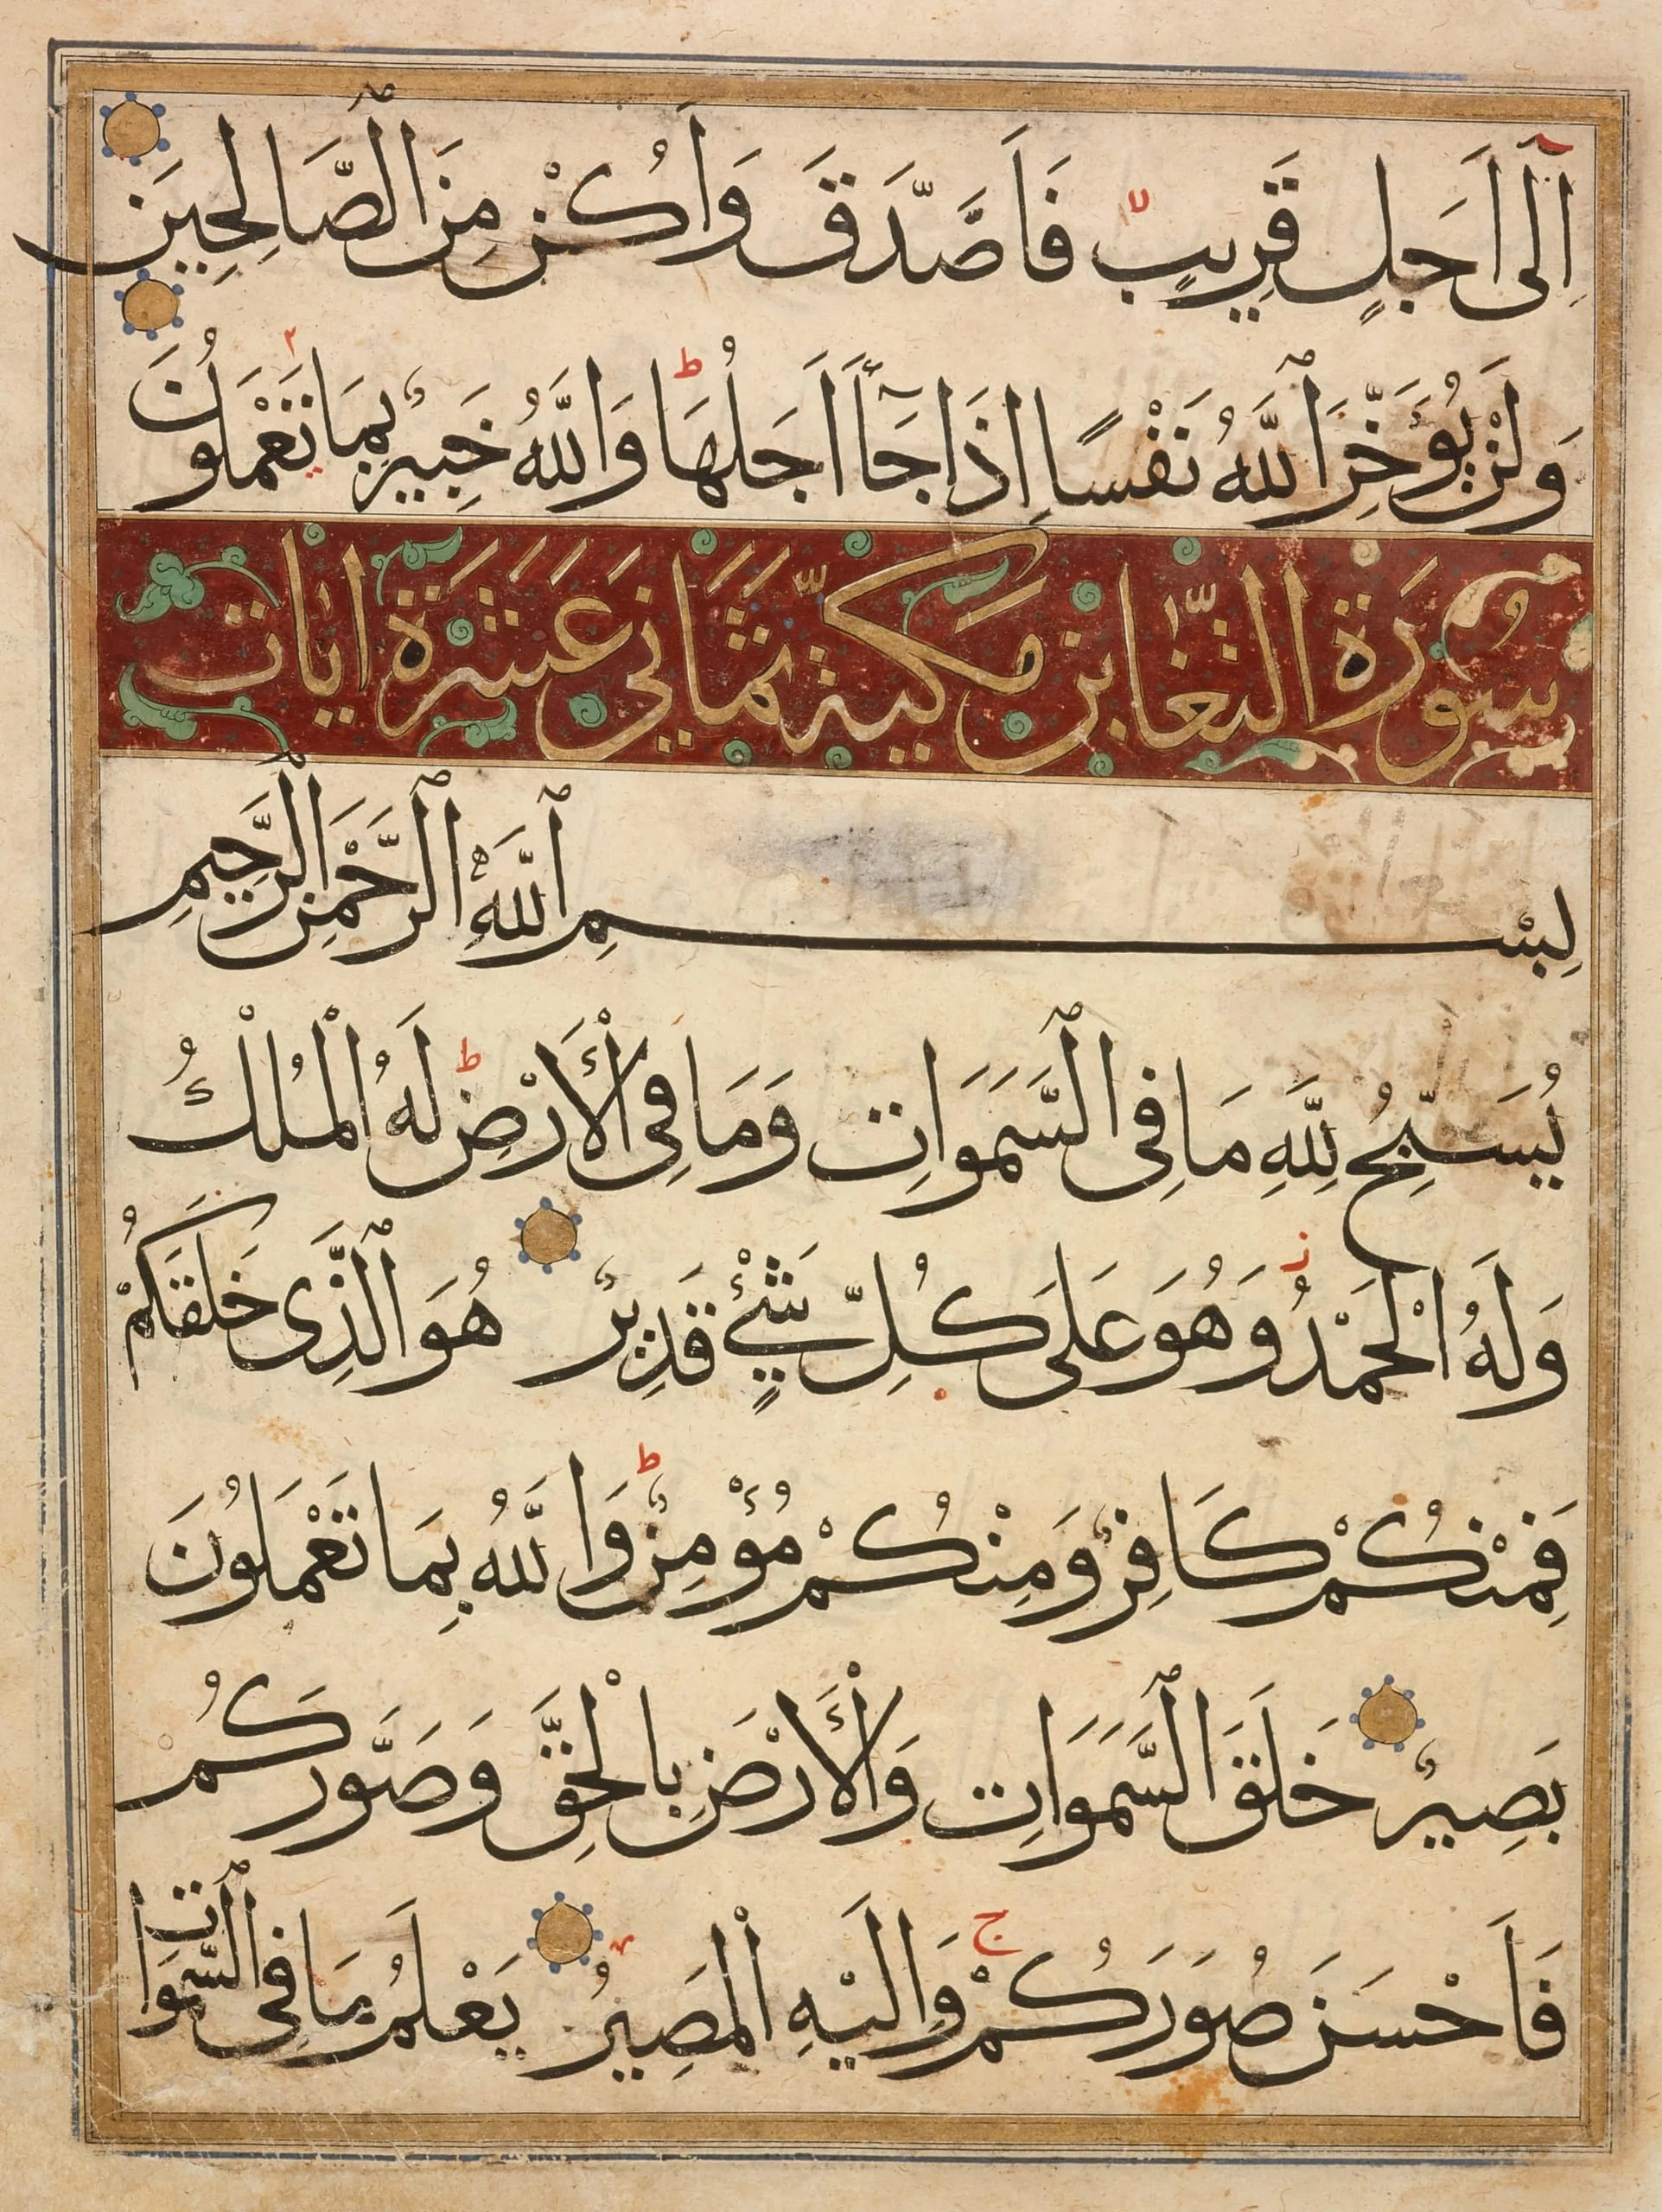 اِلٰٓى اَجَلٍ قَرِيبٍ فَاَصَّدَّقَ وَاَكُنْ مِنَ الصَّالِحِينَ
وَلَنْ يُؤَخِّرَ اللّٰهُ نَفْسًا اِذَا جَآءَ اَجَلُهَا ط وَاللّٰهُ خَبِيرٌ بِمَا تَعْمَلُونَ
سُورَةُ التَّغَابُنِ مَكِّيَّةٌ ثَمَانِي عَشَرَةَ اٰيَات
بِسْمِ اللّٰهِ الرَّحْمٰنِ الرَّحِيمِ
يُسَبِّحُ لِلّٰهِ مَا فِى السَّمَوَاتِ وَمَا فِى الْأَرْضِ ط لَهُ الْمُلْكُ
وَلَهُ الْحَمْدُ ز وَهُوَ عَلَى كُلِّ شَيْءٍ قَدِيرٌ هُوَ الَّذِى خَلَقَكُمْ
فَمِنْكُمْ كَافِرٌ وَمِنْكُمْ مُؤْمِنٌ ط وَاللّٰهُ بِمَا تَعْمَلُونَ
بَصِيرٌ خَلَقَ السَّمَوَاتِ وَالْأَرْضَ بِالْحَقِّ وَصَوَّرَكُمْ
فَاَحْسَنَ صُوَرَكُمْ ج وَاِلَيْهِ الْمَصِيرُ يَعْلَمُ مَا فِى السَّمَوَاتِ